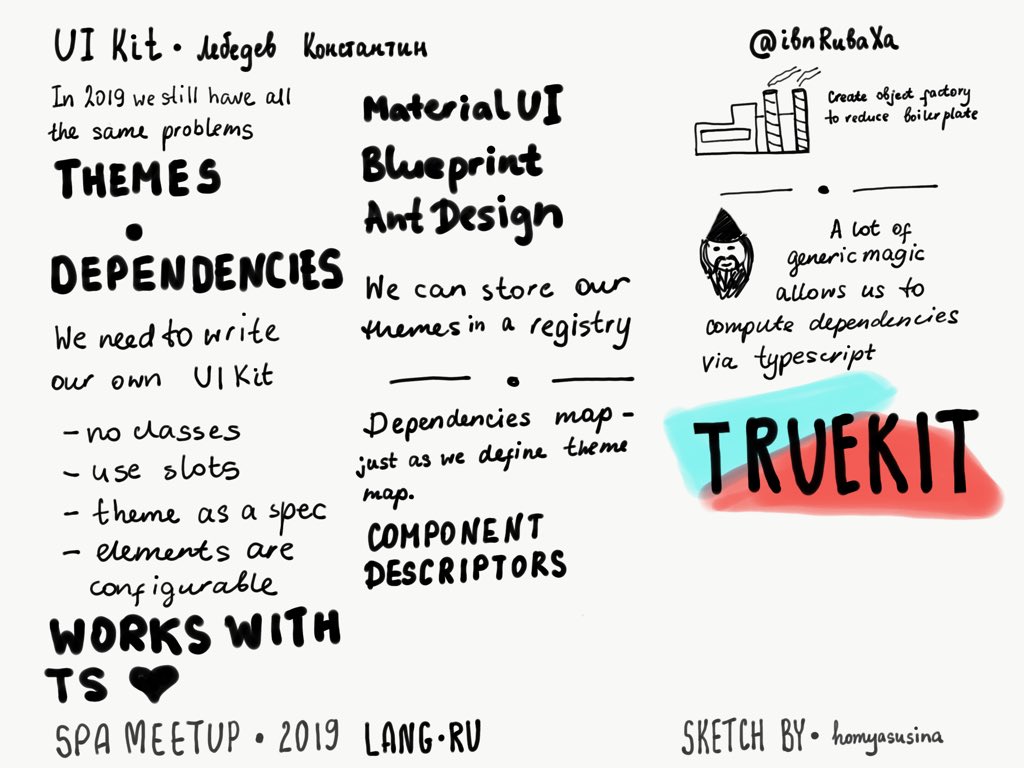 UI Kit • Лебедев Константин
In 2019 we still have all
the same problems
THEMES
•
DEPENDENCIES
We need to write
our own UI Kit
- no classes
- use slots
- theme as a spec
- elements are
configurable
WORKS WITH
TS ♥
Material UI
Blueprint
Ant Design
We can store our
themes in a registry
Dependencies map -
just as we define theme
map.
COMPONENT
DESCRIPTORS
@ibnRubaXa
Create object factory
to reduce boilerplate
A lot of
generic magic
allows us to
compute dependencies
via typescript
TRUEKIT
SPA MEETUP • 2019 LANG•RU
SKETCH BY • homyasusina